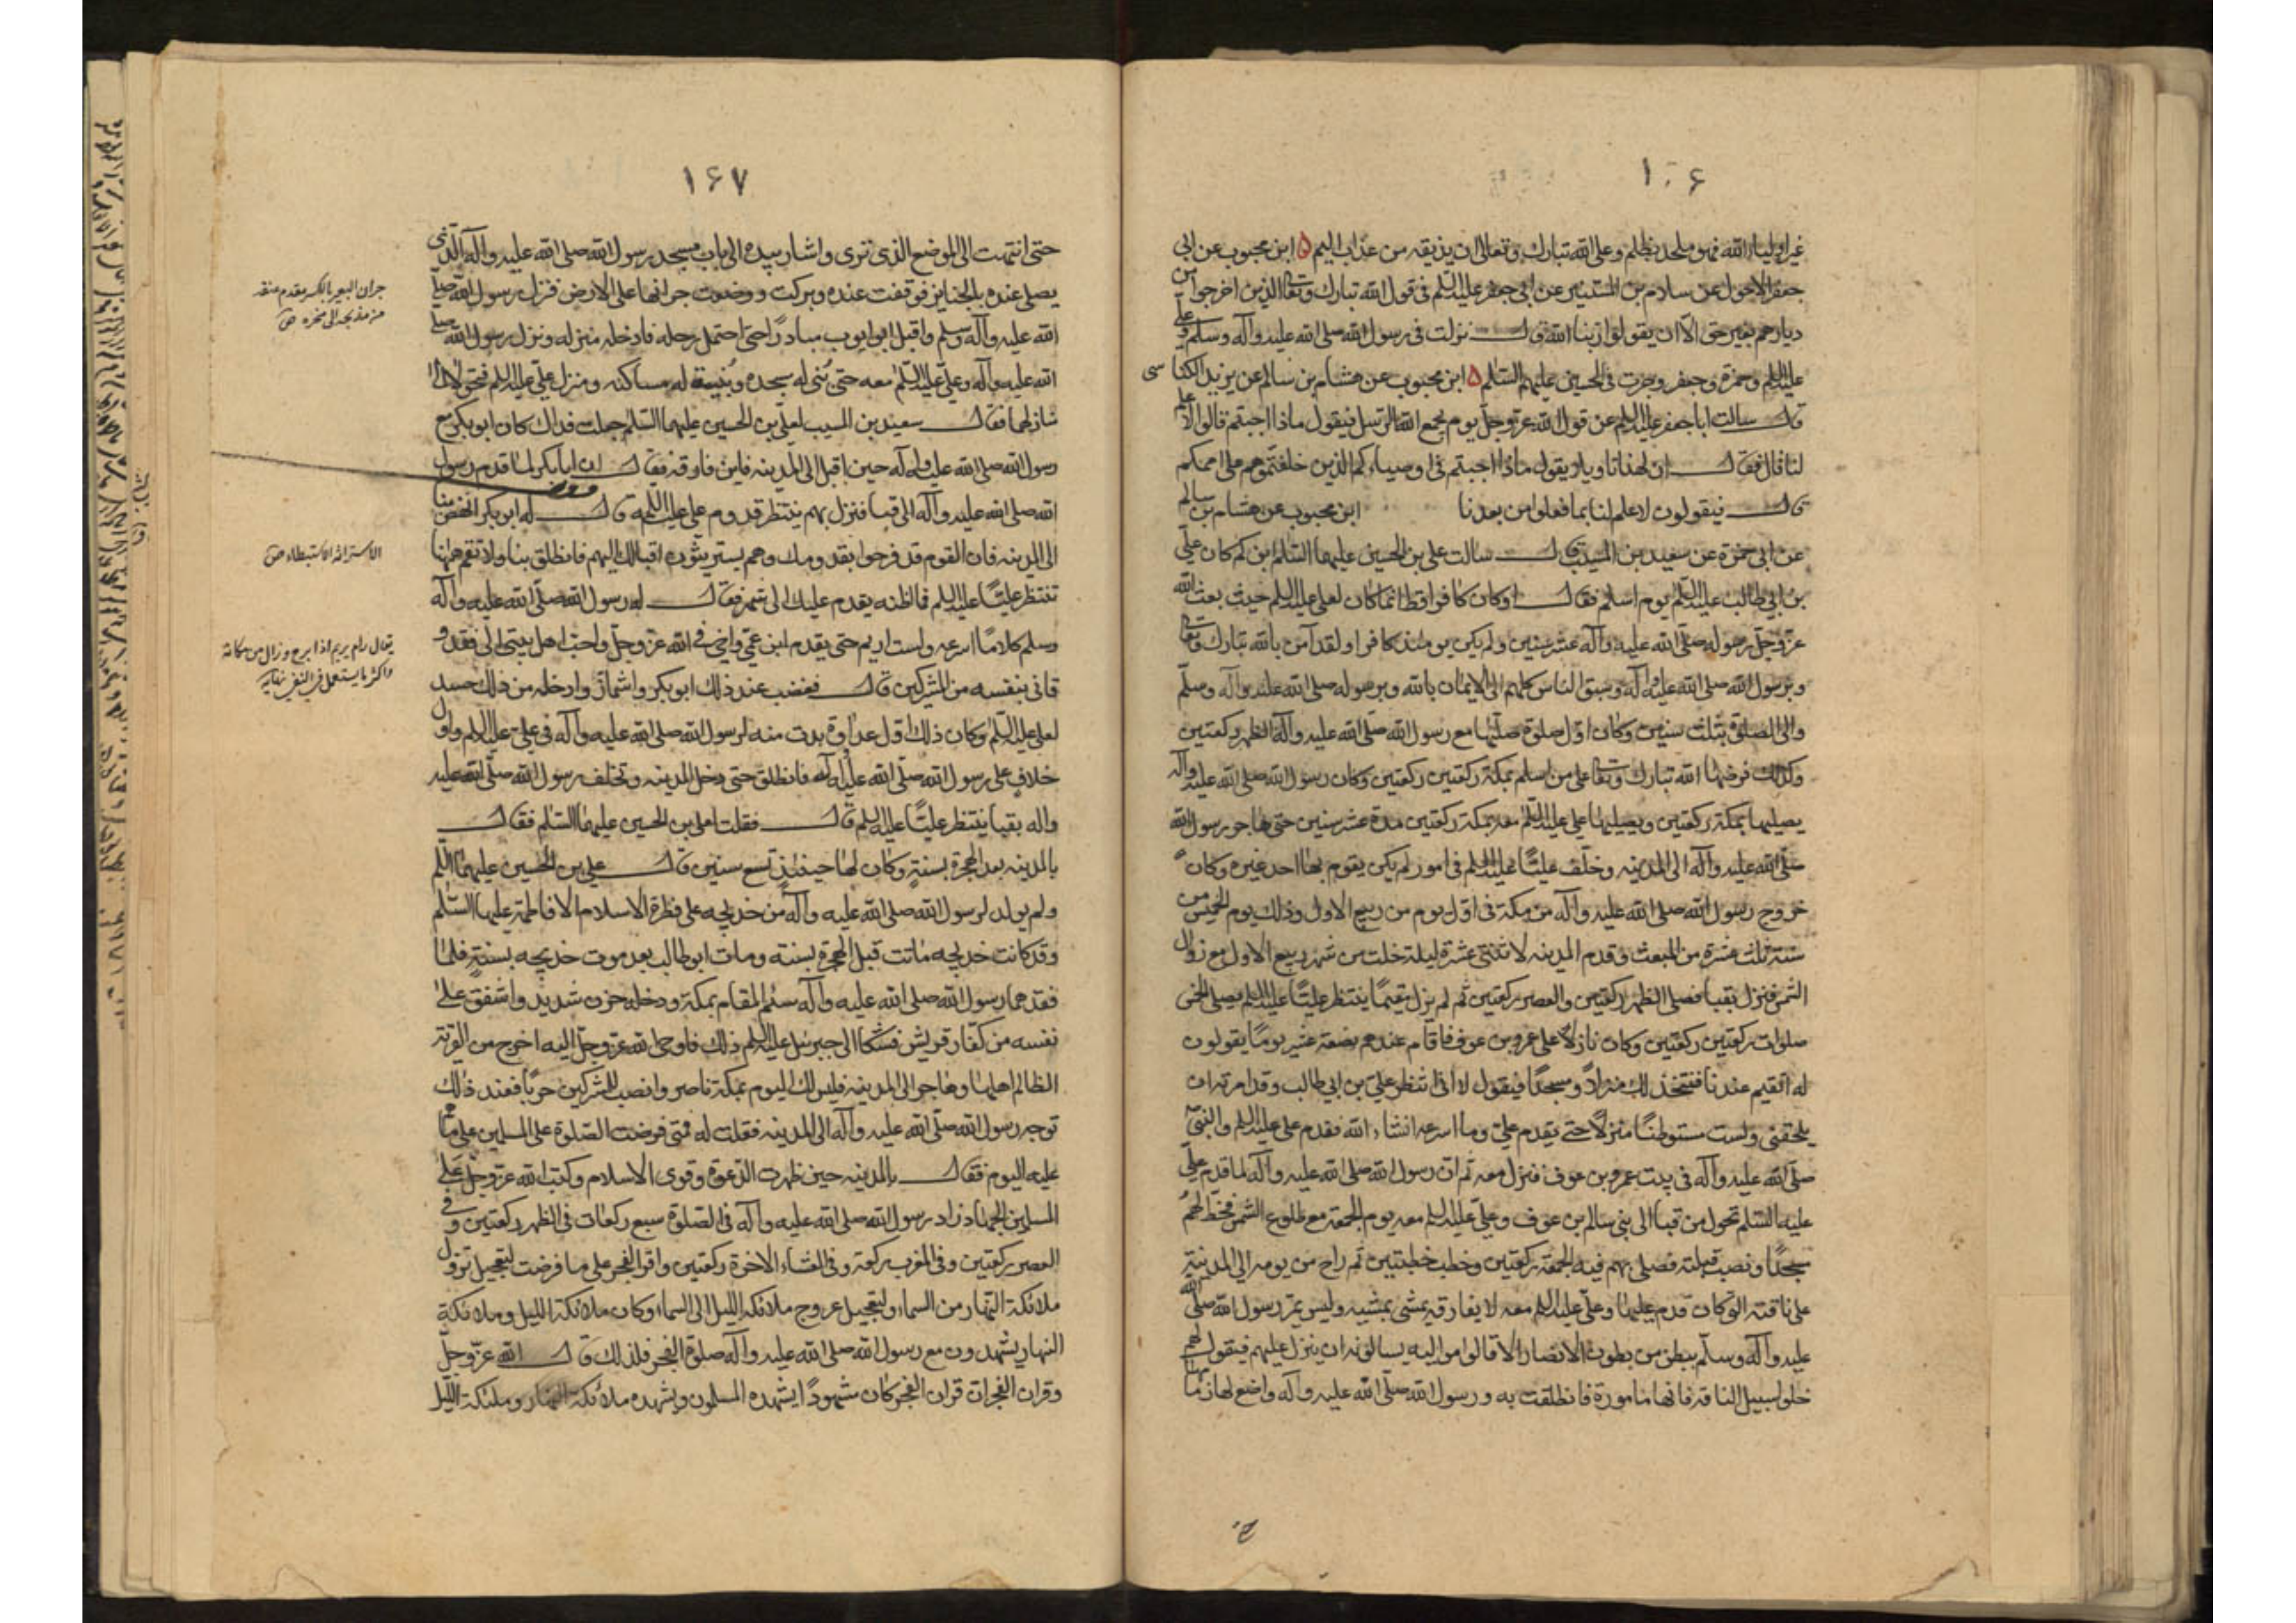 ١٠۶
غير اولياء الله فهو ملحد بظلم وعلى الله تبارك وتعالى ان يذيقه من عذاب اليم ۵ ابن محبوب عن ابى
جعفر الاحول عن سلام بن المستنير عن ابى جعفر عليه السلم فى قول الله تبارك وتعالى الذين اخرجوا من
ديارهم بغير حق الا ان يقولوا ربنا الله قال نزلت فى رسول الله صلى الله عليه وآله وسلم وعلى
عليه السلم وحمزة وجعفر وجرت فى الحسين عليهم السلام ۵ ابن محبوب عن هشام بن سالم عن يزيد الكناسى
قال سالت ابا جعفر عليه السلم عن قول الله عز وجل يوم يجمع الله الرسل فيقول ماذا اجبتم قالوا لا علم
لنا قال فقال ان لهذا تاويلا يقول ماذا اجبتم فى اوصيائكم الذين خلفتموهم على اممكم
قال فيقولون لا علم لنا بما فعلوا من بعدنا ابن محبوب عن هشام بن سالم
عن ابى حمزة عن سعيد بن المسيب قال سالت على بن الحسين عليهما السلام ابن كم كان على
بن ابى طالب عليه السلم يوم اسلم فقال او كان كافرا قط انما كان لعلى عليه السلم حيث بعث الله
عز وجل رسوله صلى الله عليه وآله عشر سنين ولم يكن يومئذ كافرا ولقد آمن بالله تبارك وتعالى
وبرسول الله صلى الله عليه وآله وسبق الناس كلهم الى الايمان بالله وبرسوله صلى الله عليه وآله وسلم
والى الصلوة بثلث سنين وكان اول صلوة صليها مع رسول الله صلى الله عليه وآله الظهر ركعتين
وكذلك فرضها الله تبارك وتعالى على من اسلم بمكة ركعتين ركعتين وكان رسول الله صلى الله عليه وآله
يصليها بمكة ركعتين ويصليها على عليه السلم معه بمكة ركعتين مدة عشر سنين حتى هاجر رسول الله
صلى الله عليه وآله الى المدينه وخلف عليا عليه السلم فى امور لم يكن يقوم بها احد غيره وكان
خروج رسول الله صلى الله عليه وآله من مكة فى اول يوم من ربيع الاول وذلك يوم الخميس من
سنة ثلث عشرة من المبعث وقدم المدينه لاثنتى عشرة ليلة خلت من شهر ربيع الاول مع زوال
الشمس فنزل بقبا فصلى الظهر ركعتين والعصر ركعتين ثم لم يزل مقيما ينتظر عليا عليه السلم يصلى الخمس
صلوات ركعتين ركعتين وكان نازلا على عمرو بن عوف فاقام عندهم بضعة عشر يوما يقولون
له اتقيم عندنا فنتخذ لك منزلا ومسجدا فيقول لا انى انتظر على بن ابى طالب وقد امرته ان
يلحقنى ولست مستوطنا منزلا حتى يقدم على وما اسرعه انشاء الله فقدم على عليه السلم والنبى
صلى الله عليه وآله فى بيت عمرو بن عوف فنزل معه ثم ان رسول الله صلى الله عليه وآله لما قدم على
عليه السلم تحول من قبا الى بنى سالم بن عوف وعلى عليه السلم معه يوم الجمعة مع طلوع الشمس فخط لهم
مسجدا ونصب قبلته فصلى بهم فيه الجمعة ركعتين وخطب خطبتين ثم راح من يومه الى المدينة
على ناقته التى كان قدم عليها وعلى عليه السلم معه لا يفارقه يمشى بمشيه وليس يمر رسول الله صلى الله
عليه وآله وسلم ببطن من بطون الانصار الا قاموا اليه يسالونه ان ينزل عليهم فيقول لهم
خلو لسبيل الناقه فانها مامورة فانطلقت به ورسول الله صلى الله عليه وآله واضع لها زمامها
١۶٧
حتى انتهت الى الموضع الذى ترى واشار بيده الى باب مسجد رسول الله صلى الله عليه وآله الذى
يصلى عنده بالجنايز فوقفت عنده وبركت ووضعت جرانها على الارض فنزل رسول الله صلى
الله عليه وآله وسلم واقبل ابو ايوب مبادرا حتى احتمل رحله فادخله منزله ونزل رسول الله صلى
الله عليه وآله وعلى عليه السلم معه حتى بنى له مسجده وبنيت له مساكنه ومنزل على عليه السلم فتحولا الى
منازلهما فقال سعيد بن المسيب لعلى بن الحسين عليهما السلم جعلت فداك كان ابو بكر مع
رسول الله صلى الله عليه وآله حين اقبل الى المدينه فاين فارقه فقال ان ابا بكر لما قدم رسول
الله صلى الله عليه وآله الى قبا فنزل بهم ينتظر قدوم على عليه السلم قال له ابو بكر انهض بنا
الى المدينه فان القوم قد فرحوا بقدومك وهم يستريثون اقبالك اليهم فانطلق بنا ولا تقم هيهنا
تنتظر عليا عليه السلم فما اظنه يقدم عليك الى شهر فقال له رسول الله صلى الله عليه وآله
وسلم كلا ما اسرعه ولست اريم حتى يقدم ابن عمى واخى فى الله عز وجل واحب اهل بيتى الى فقد و
قانى بنفسه من المشركين قال فغضب عند ذلك ابو بكر واشمأز وادخله من ذلك حسد
لعلى عليه السلم وكان ذلك اول عداوة بدت منه لرسول الله صلى الله عليه وآله فى على عليه السلم واول
خلاف على رسول الله صلى الله عليه وآله فانطلق حتى دخل المدينه وتخلف رسول الله صلى الله عليه
وآله بقبا ينتظر عليا عليه السلم قال فقلت لعلى بن الحسين عليهما السلم فقال
بالمدينه بعد الهجرة بسنة وكان لها حينئذ تسع سنين قال على بن الحسين عليهما السلم
ولم يولد لرسول الله صلى الله عليه وآله من خديجه على فطرة الاسلام الا فاطمة عليها السلم
وقد كانت خديجه ماتت قبل الهجرة بسنة ومات ابو طالب بعد موت خديجه بسنة فلما
فقدهما رسول الله صلى الله عليه وآله سئم المقام بمكة ودخله حزن شديد واشفق على
نفسه من كفار قريش فشكا الى جبرئيل عليه السلم ذلك فاوحى الله عز وجل اليه اخرج من القرية
الظالم اهلها وهاجر الى المدينه فليس لك اليوم بمكة ناصر وانصب للمشركين حربا فعند ذلك
توجه رسول الله صلى الله عليه وآله الى المدينه فقلت له فمتى فرضت الصلوة على المسلمين على ما هم
عليه اليوم فقال بالمدينه حين ظهرت الدعوة وقوى الاسلام وكتب الله عز وجل على
المسلمين الجهاد زاد رسول الله صلى الله عليه وآله فى الصلوة سبع ركعات فى الظهر ركعتين وفى
العصر ركعتين وفى المغرب ركعة وفى العشاء الاخرة ركعتين واقر الفجر على ما فرضت لتعجيل نزول
ملائكة النهار من السماء ولتعجيل عروج ملائكة الليل الى السماء وكان ملائكة الليل وملائكة
النهار يشهدون مع رسول الله صلى الله عليه وآله صلوة الفجر فلذلك قال الله عز وجل
وقران الفجر ان قران الفجر كان مشهودا يشهده المسلمون ويشهده ملائكة النهار وملئكة الليل
جران البعير بالكسر مقدم عنقه
من مذبحه الى منخره ص
الاستراثه الاستبطاء ص
يقال رام يريم اذا برح وزال من مكانه
واكثر ما يستعمل فى النفى نهايه